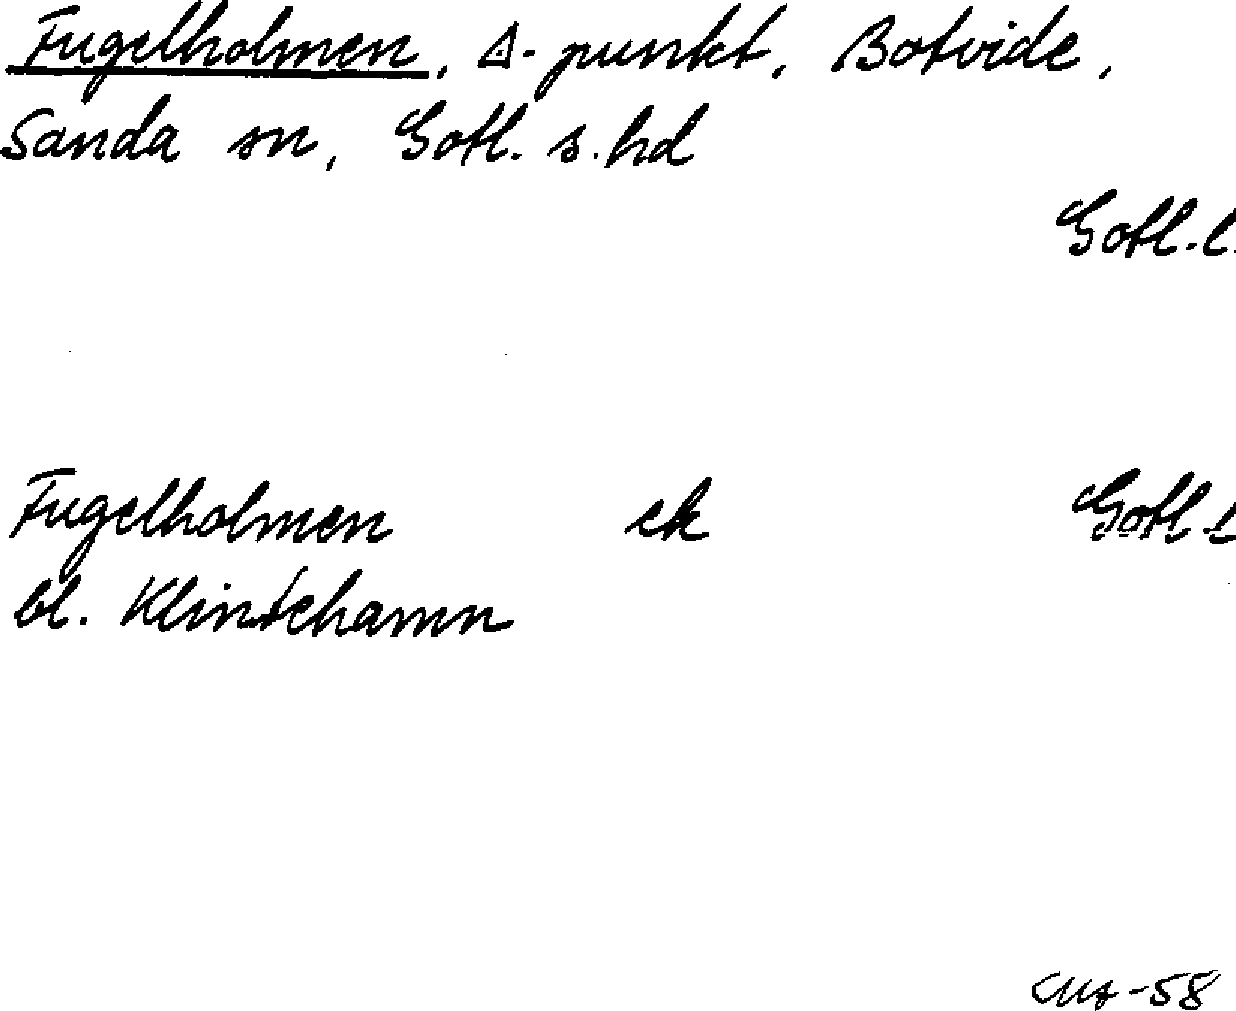 Fugelholmen, ∆-punkt, Botvide,
Sanda sn, Gotl. s. hd
Gotl. l.
Fugelholmen ek Gotl. l
bl. Klintehamn
-58